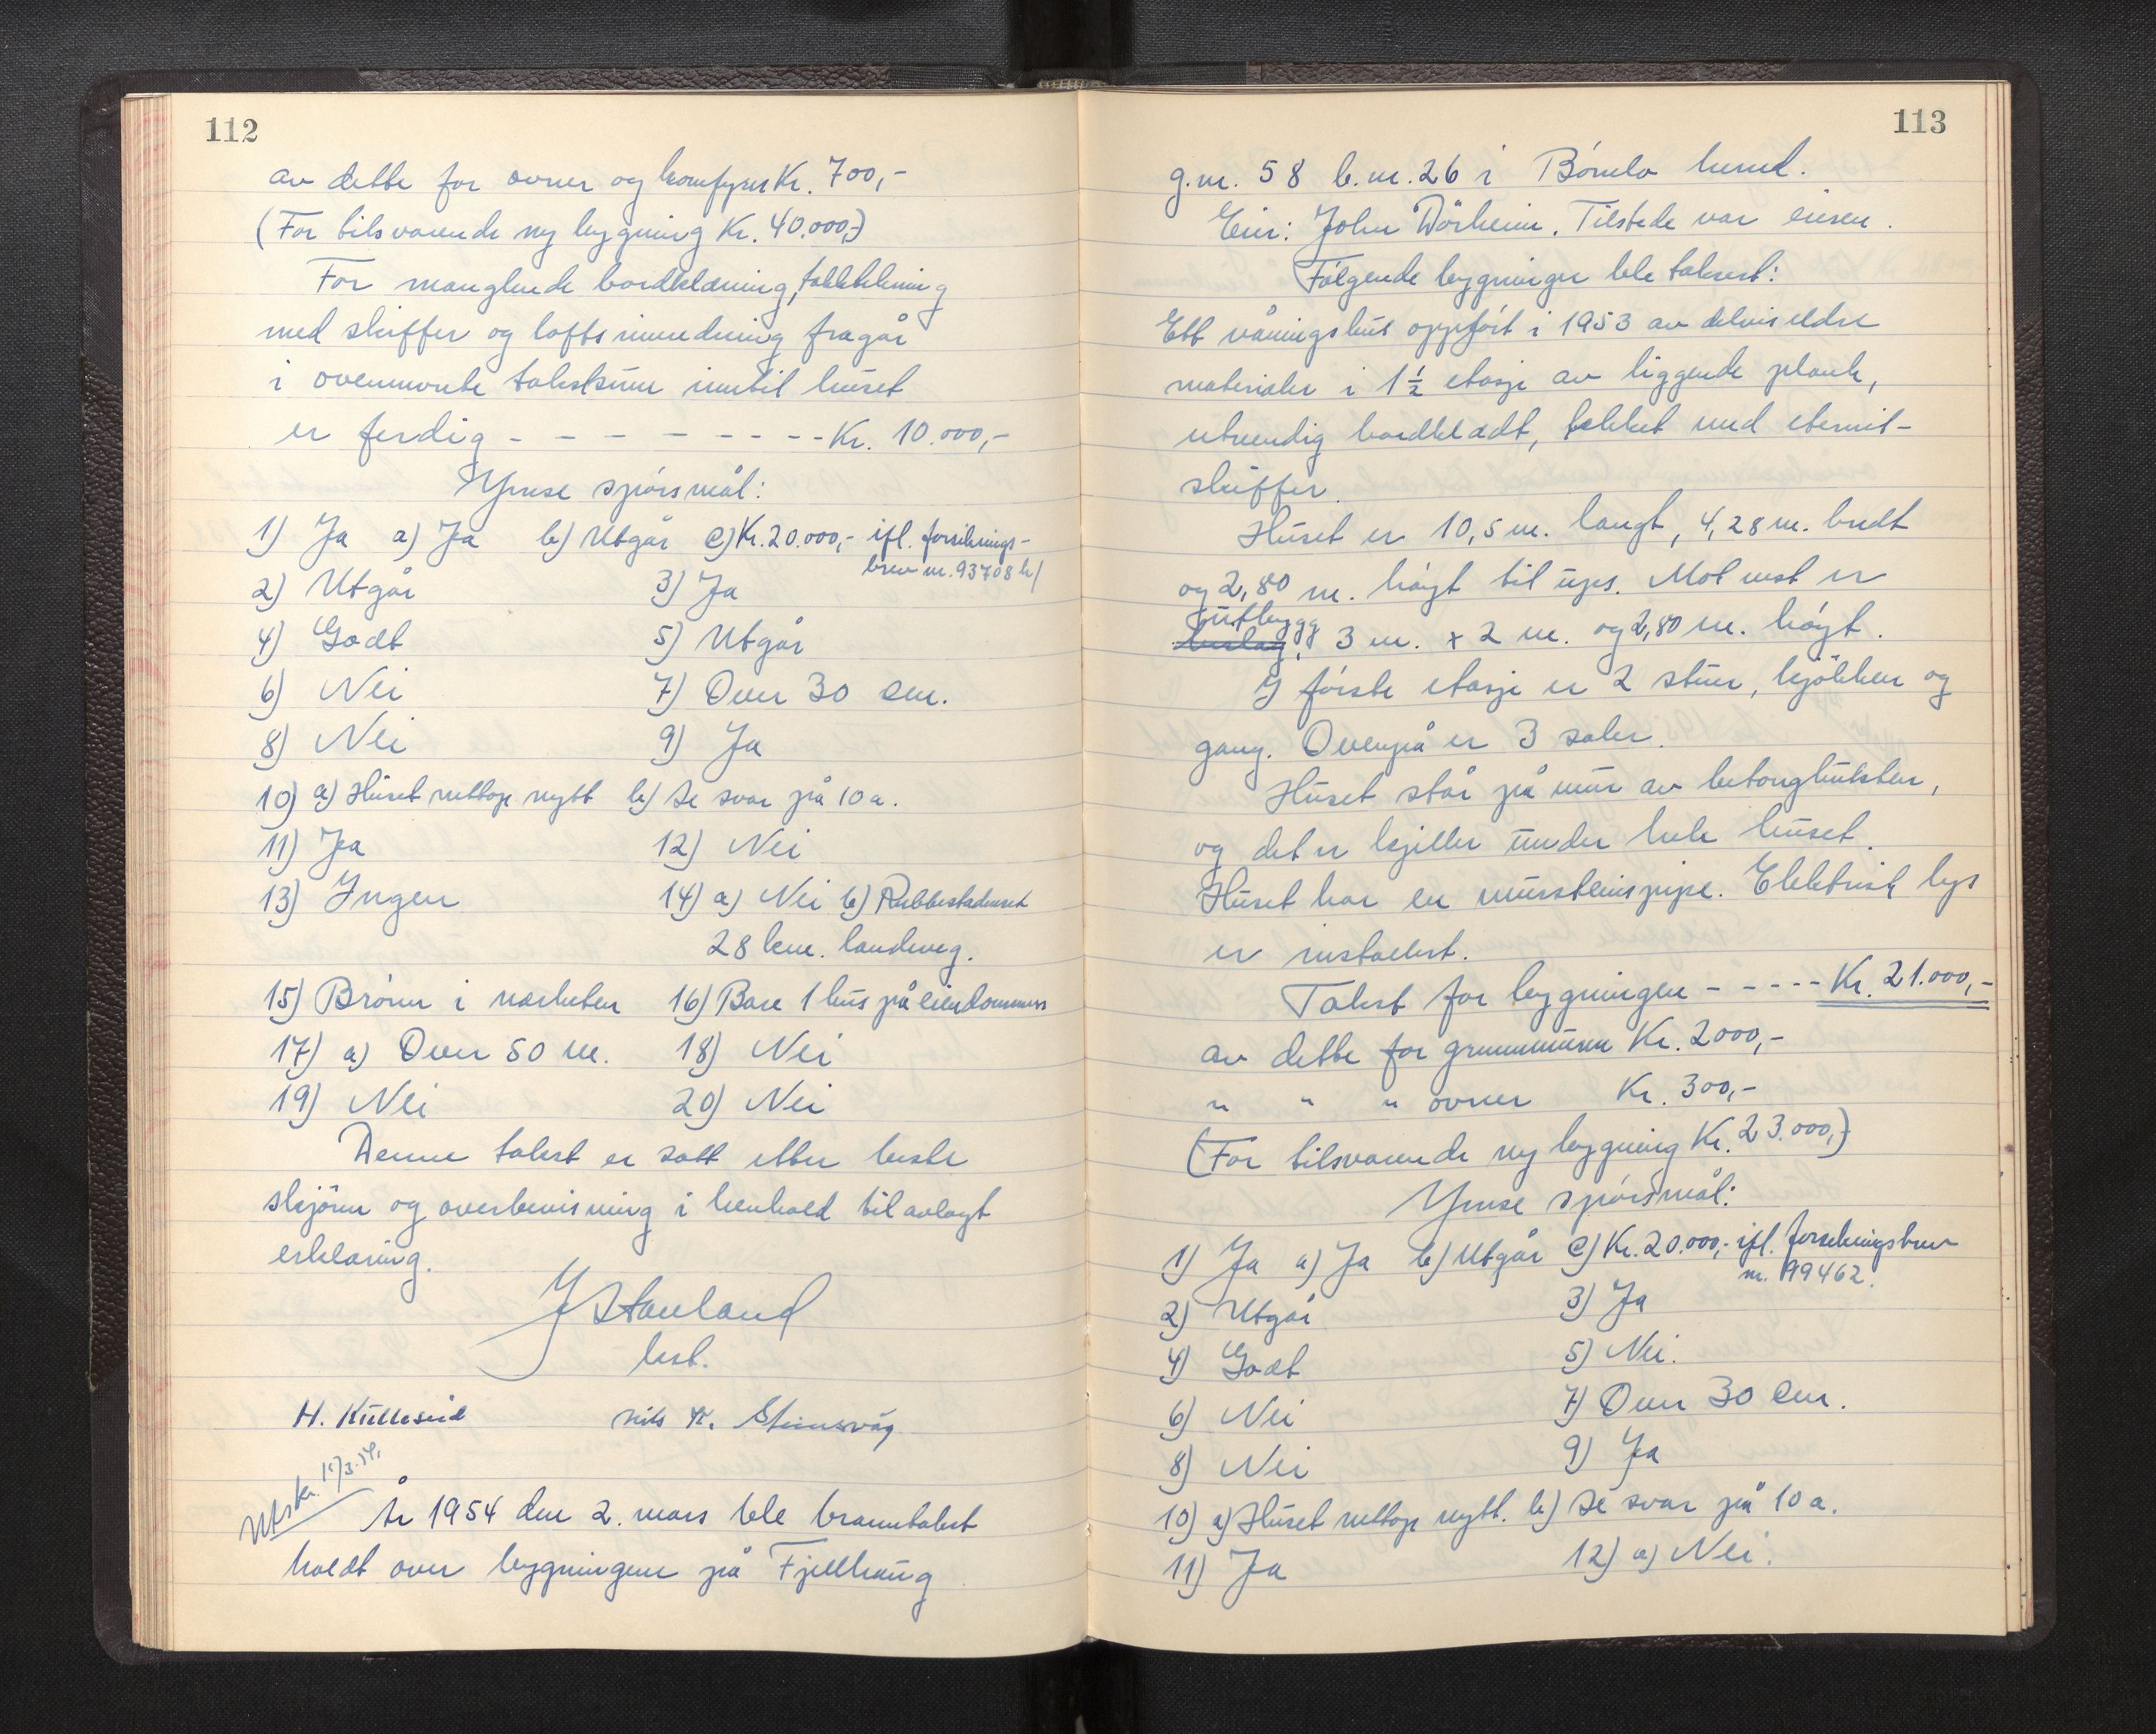 112
av dette for ovner og komfyrer Kr. 700,-
(For tilsvarende ny bygning Kr. 40.000,-)
For manglende bordklædning, taktekkning
med skiffer og loftsinnredning fragår
i ovennevnte takstsum inntil huset
er ferdig - - - - - - - - - Kr. 10.000,-
Ymse spörsmål:
1) Ja a) Ja b) Utgår c) Kr. 20.000,- ifl. forsikrings-
brev nr. 93708 b/
2) Utgår 3) Ja
4) Godt 5) Utgår
6) Nei 7) Over 30 cm.
8) Nei 9) Ja
10) a) Huset nettop nytt b) Se svar på 10 a.
11) Ja 12) Nei
13) Ingen 14) a) Nei b) Rubbestadneset
28 km. landveg.
15) Brönn i nærheten 16) Bare 1 hus på eiendommen
17) a) Over 50 m. 18) Nei
19) Nei 20) Nei
Denne takst er satt etter beste
skjönn og overbevisning i henhold til avlagt
erklæring.
J Stauland
lest.
H. Kulleseid Nils K. Steinsvåg
Utskr. 17/3.54.
År 1954 den 2. mars ble branntakst
holdt over bygningene på Fjellhaug
113
g.nr. 58 b.nr. 26 i Bömlo herred.
Eier: John Dörheim. Tilstede var eieren.
Fölgende bygninger ble taksert:
Ett våningshus oppfört i 1953 av delvis eldre
materialer i 1 1/2 etasje av liggende plank,
utvendig bordklædt, tekket med eternit-
skiffer.
Huset er 10,5 m. langt, 4,28 m. bredt
og 2,80 m. höyt til ups. Mot vest er
utbygg
3 m. x 2 m. og 2,80 m. höyt.
I förste etasje er 2 stuer, kjökken og
gang. Ovenpå er 3 saler.
Huset står på mur av betonghulsten,
og det er kjeller under hele huset.
Huset har en mursteinspipe. Elektrisk lys
er installert.
Takst for bygningen - - - - - Kr. 21.000,-
av dette for grunnmuren Kr. 2000,-
" " " ovner Kr. 300,-
(For tilsvarende ny bygning Kr. 23.000,-)
Ymse spörsmål:
1) Ja a) Ja b) Utgår c) Kr. 20.000,- ifl. forsikringsbrev
nr. 99462.
2) Utgår 3) Ja
4) Godt 5) Nei.
6) Nei 7) Over 30 cm.
8) Nei 9) Ja
10) a) Huset nettop nytt. b) Se svar på 10 a.
11) Ja 12) a) Nei.